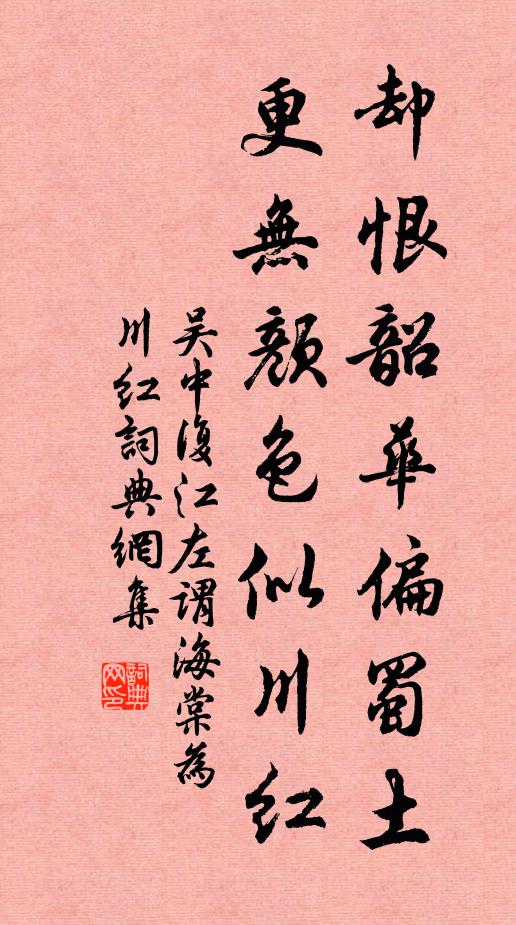 却恨韶華偏蜀土
更無顏色似川紅
吴中復江左謂海棠為
川紅詞典網集
詞典
网印